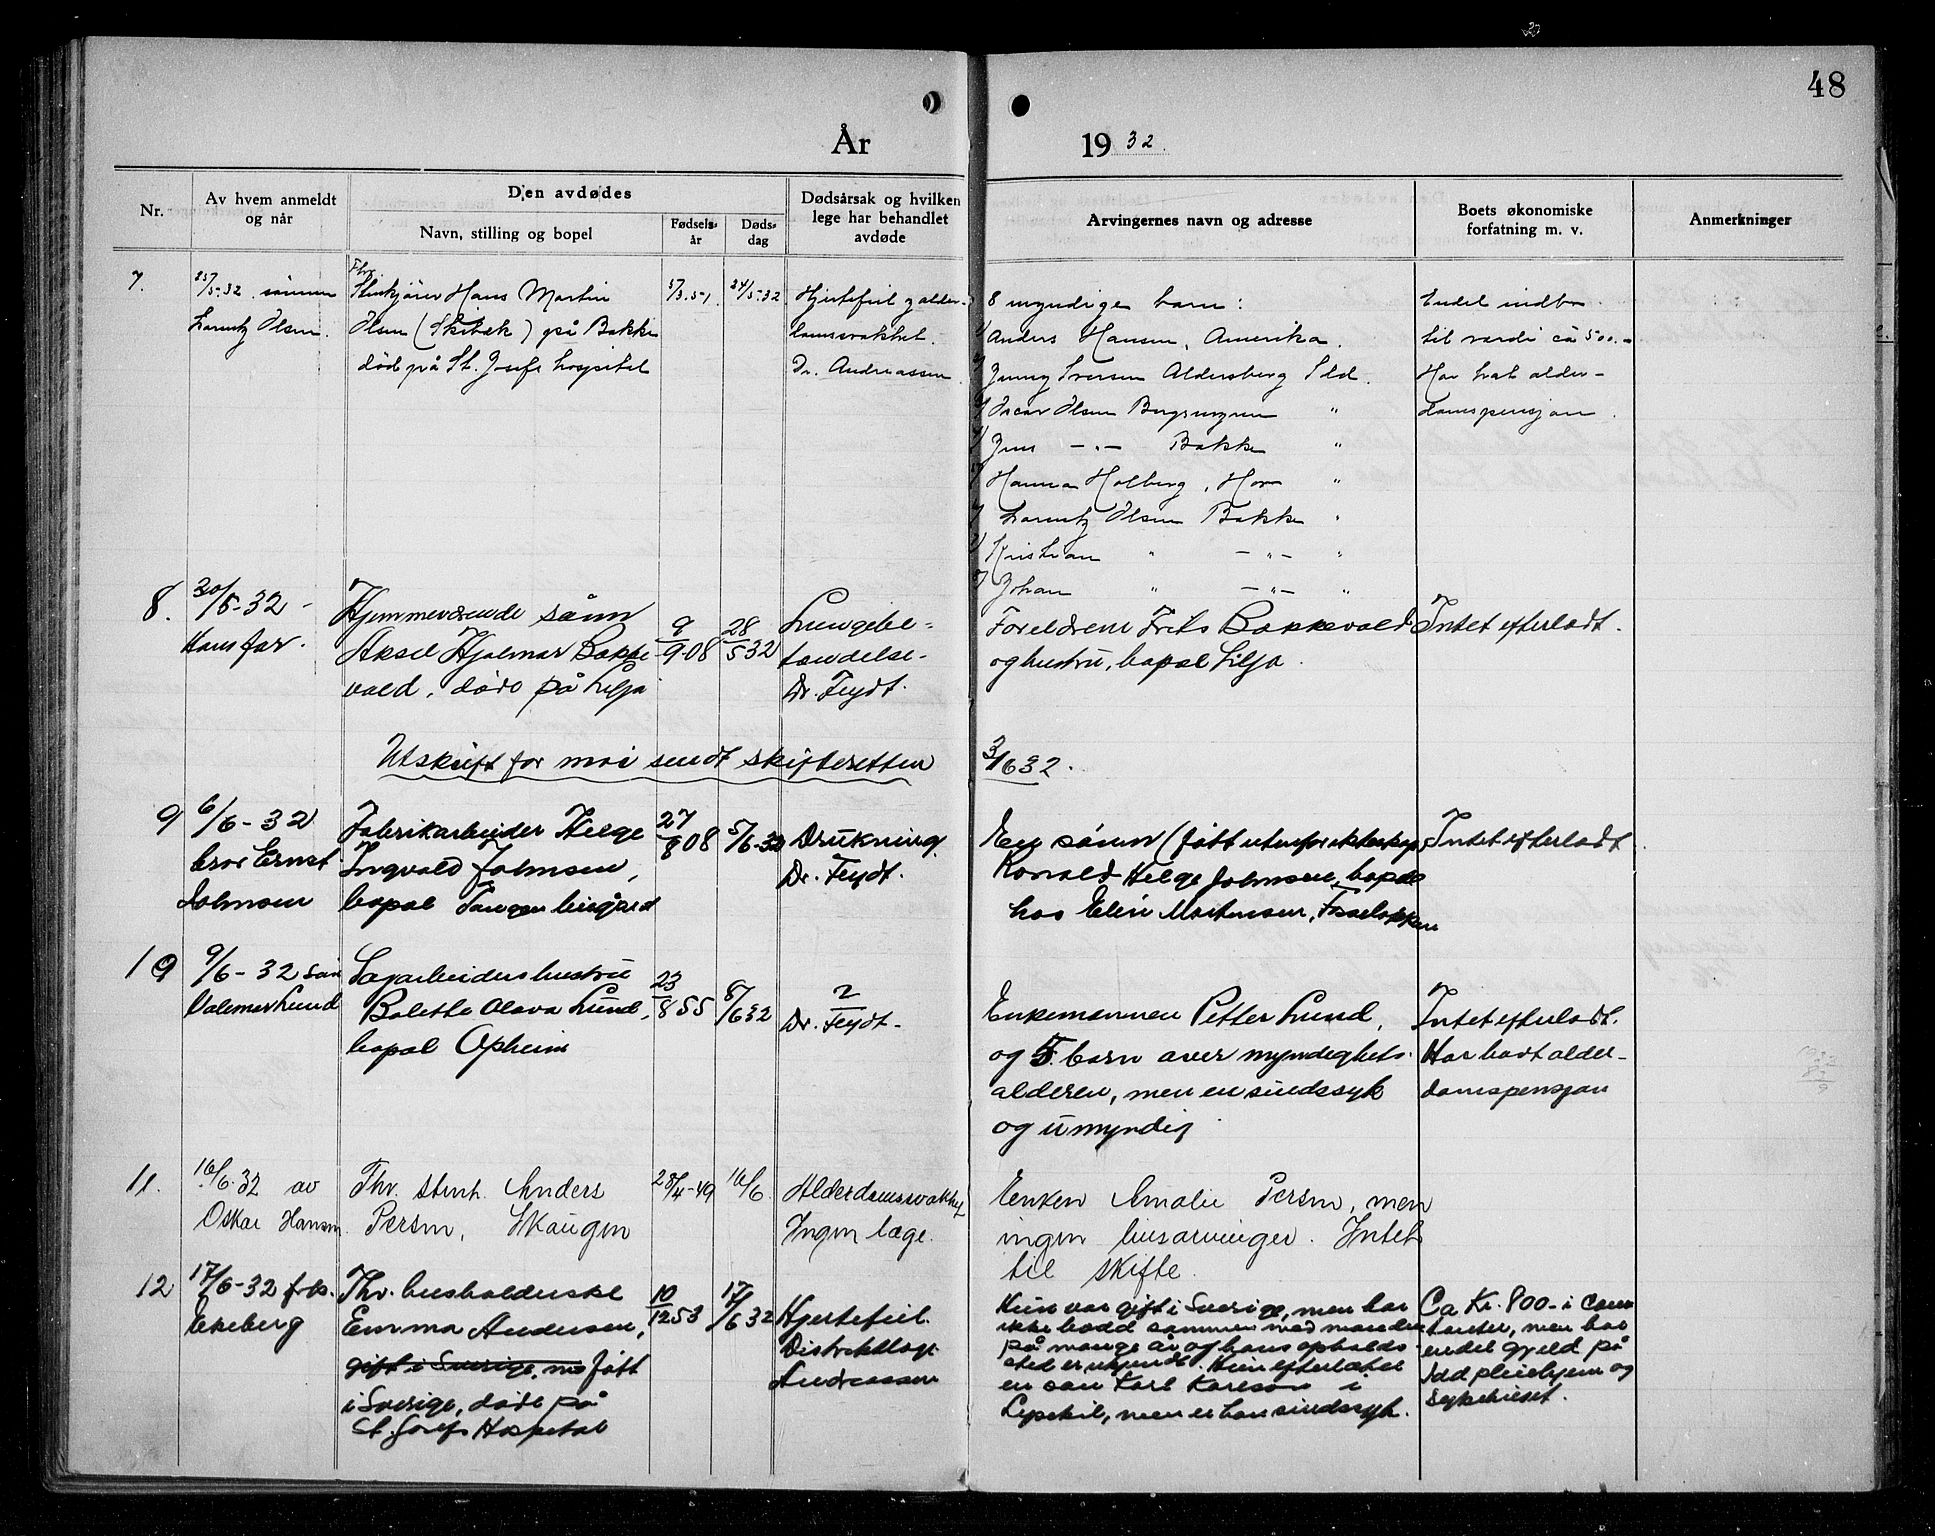 48
År 1932.
Nr.
Av hvem anmeldt
og når
Den avdødes
Navn, stilling og bopel
Fødsels-
år
Døds-
dag
Dødsårsak og hvilken
lege har behandlet
avdøde
Arvingernes navn og adresse
Boets økonomiske
forfatning m. v.
Anmerkninger
7.
25/5-32. sønnen
Lorentz Olsen.
Fhv.
Stenkjører Hans Martin
Olsen (Skibæk) på Bakke
død på St. Josefs hospital
5/3.51
24/5-32
Hjertefeil g alder-
domssvakhet.
Dr. Andreassen.
8 myndige barn:
1/ Anders Hansen, Amerika.
2/ Jenny Iversen Aldersberg Idd.
3/ Oscar Olsen "
4/ Jens -"- Bakke "
5/ Hanna Holberg, Hov "
6/ Lorentz Olsen Bakke "
7/ Kristian " -"- "
8/ Johan " -"- "
Endel indbo
til verdi ca 500.-
Har hat alder-
domspensjon.
8.
30/5-32 -
Hans far.
Hjemmeværende sønn
Aksel Hjalmar Bakke
vald, døde på Lilja
9/9-08
28/5 32
Lungebe-
tendelse.
Dr. Feydt.
Foreldrene Frits Bakkevald
og hustru, bopal Lilja.
Intet efterladt.
Utskrift for mai sendt skifteretten
3/6 32.
9
6/6-32
bror Ernst
Johnsen
Fabrikarbeider Helge
Ingvald Johnsen,
bopal Tangen bergård
27/8 08
5/6-32
Drukning.
Dr. Feydt.
En sønn (født utenfor ekteskap)
Ronald Helge Johnsen, bopæl
hos Elin Mortensen, Fosseløkken
Intet efterladt
10
9/6-32 søn
Valemar Lund
Sagarbeiders hustru
Bolette Olava Lund,
bopal Opheim
23/8 55
8/6 32
?
Dr. Feydt.
Enkemannen Petter Lund,
og 5 barn over myndighets-
alderen, men en sindssyk
og umyndig
Intet efterladt.
Har hadt alder-
domspensjon
11.
16/6.32 av
Oskar Hansen
Fhv. stenh. Anders
Persen, Skaugen
28/4-49
16/6.
Alderdomssvakhet
Ingen læge.
Enken Amalie Persen, men
ingen livsarvinger. Intet
til skifte.
12
17/6-32 frk.
Ekeberg
Fhv. husholderske
Emma Andersen,
gift i Sverige, no født
i Sverige, døde på
St. Josefs Hospital
10/12 53
17/6 32
Hjertefeil.
Distriktlæge
Andreassen
Hun var gift i Sverige, men har
ikke bodd sammen med manden
på mange år og hans opholds-
sted er ukjendt. Hun efterlater
en søn Karl Karlson i
Lysekil, men er han sindssyk.
Ca Kr. 800- i Con
tanter, men har
endel gjeld på
Idd pleiehjem og
sykehuset.